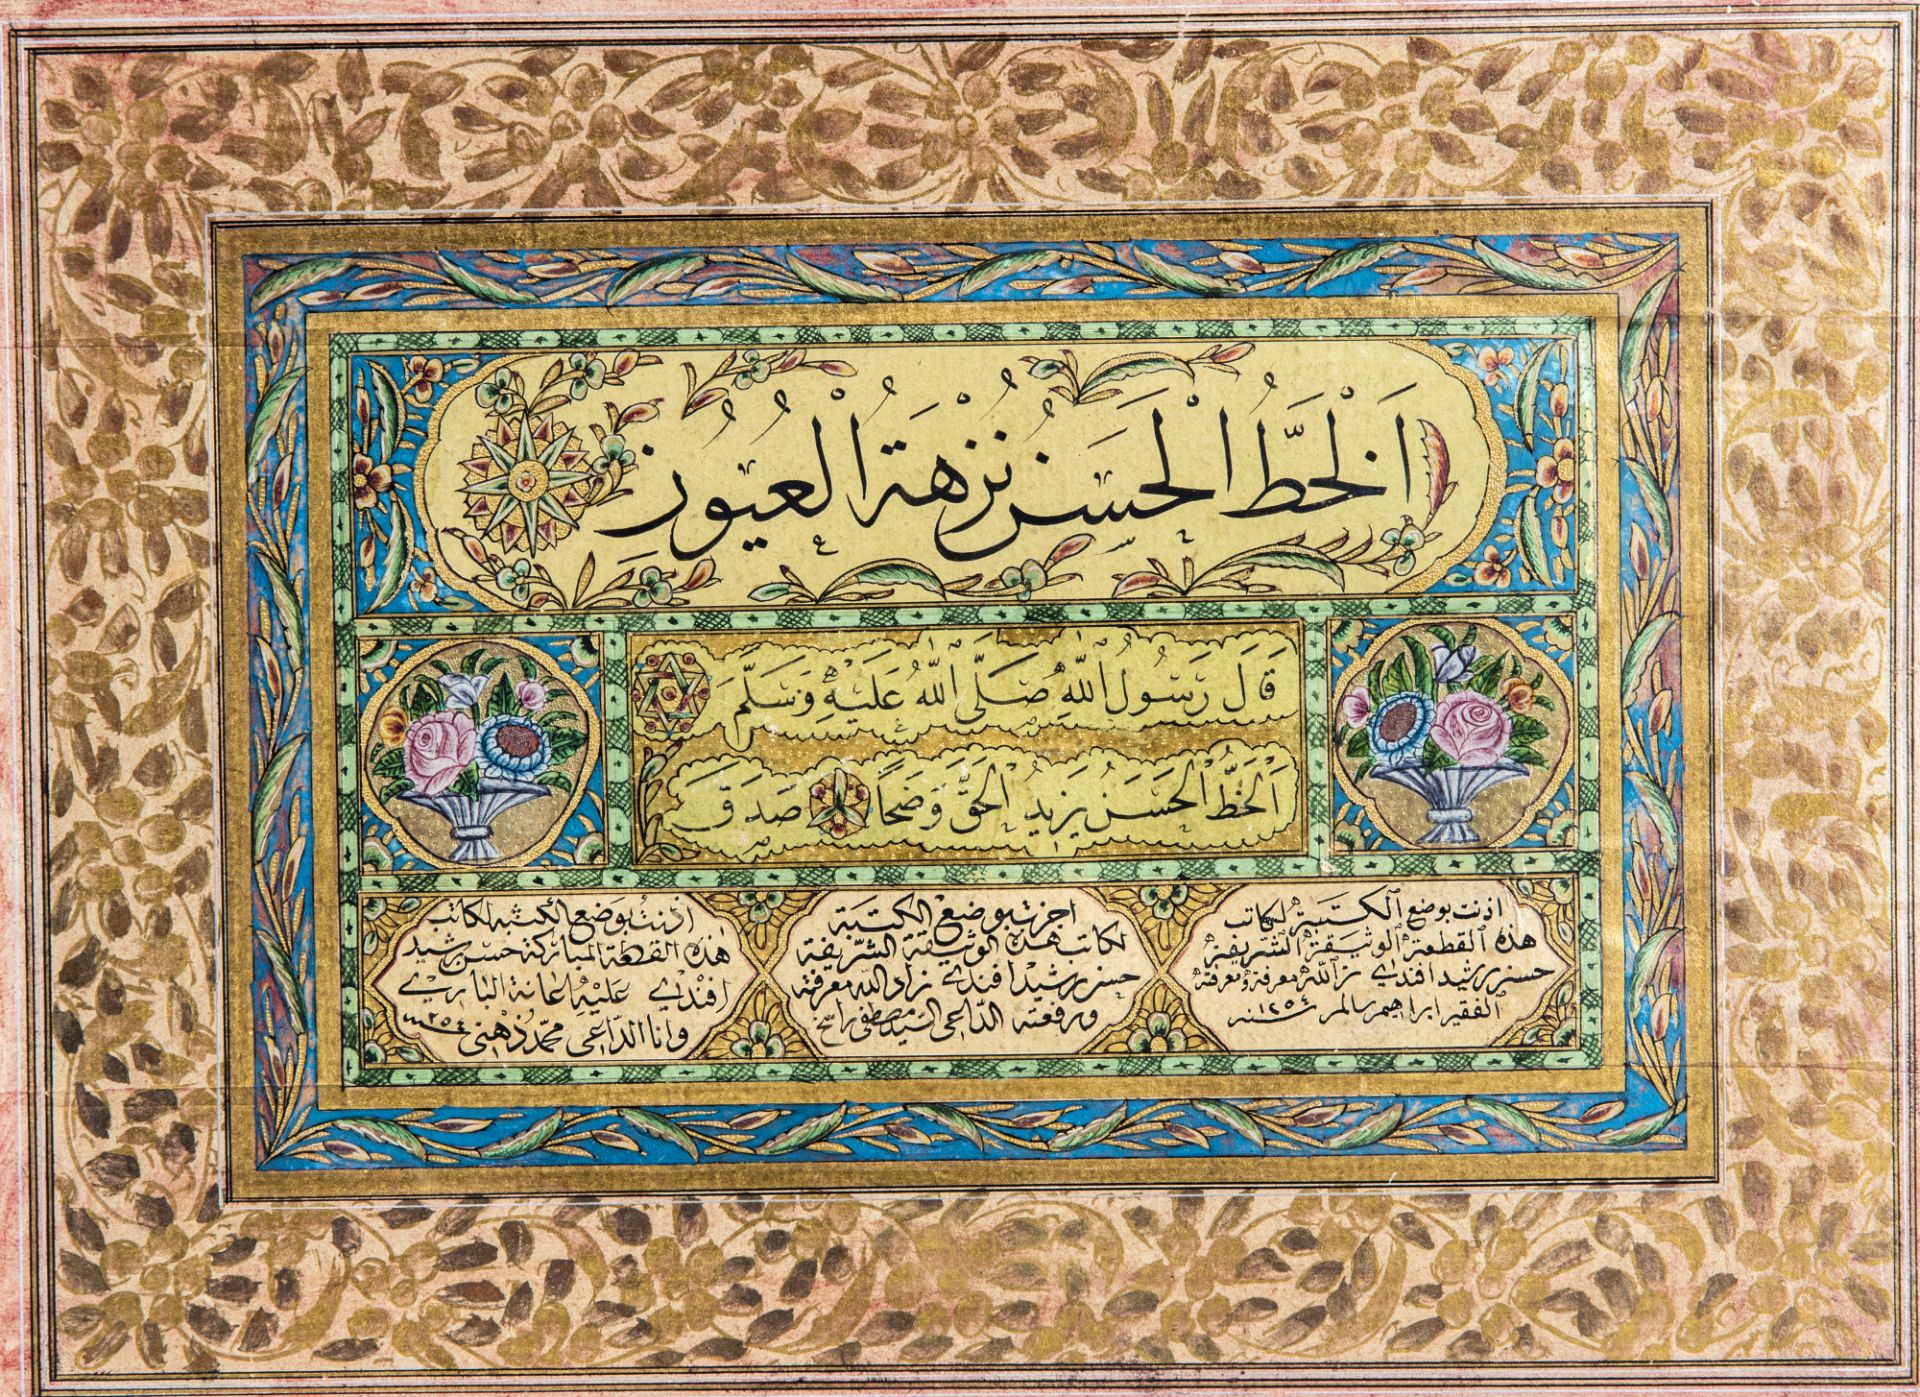 اَلْخَطُّ الْحَسَنُ نُزْهَةُ الْعُيُونِ
قَالَ رَسُولُ اللهِ صَلَّى اللهُ عَلَيْهِ وَسَلَّمَ
اَلْخَطُّ الْحَسَنُ يَزِيدُ الْحَقَّ وَضَحًا صَدَقَ
اذنت بوضع الكتبة لكاتب
هذه القطعة الوثيقة الشريفة
حسن رشيد افندي زاد الله معرفته
الفقير ابراهيم سالم سنه ١٢٥٤
اجزت بوضع الكتبة
لكاتب هذه الوثيقة الشريفة
حسن رشيد افندي زاد الله معرفته
ورفعته الداعي السيد مصطفى راسخ
اذنت بوضع الكتبه لكاتب
هذه القطعة المباركة حسن رشيد
افندي عليه اعانة الباري
وانا الداعي محمد ذهني سنة ١٢٥٤